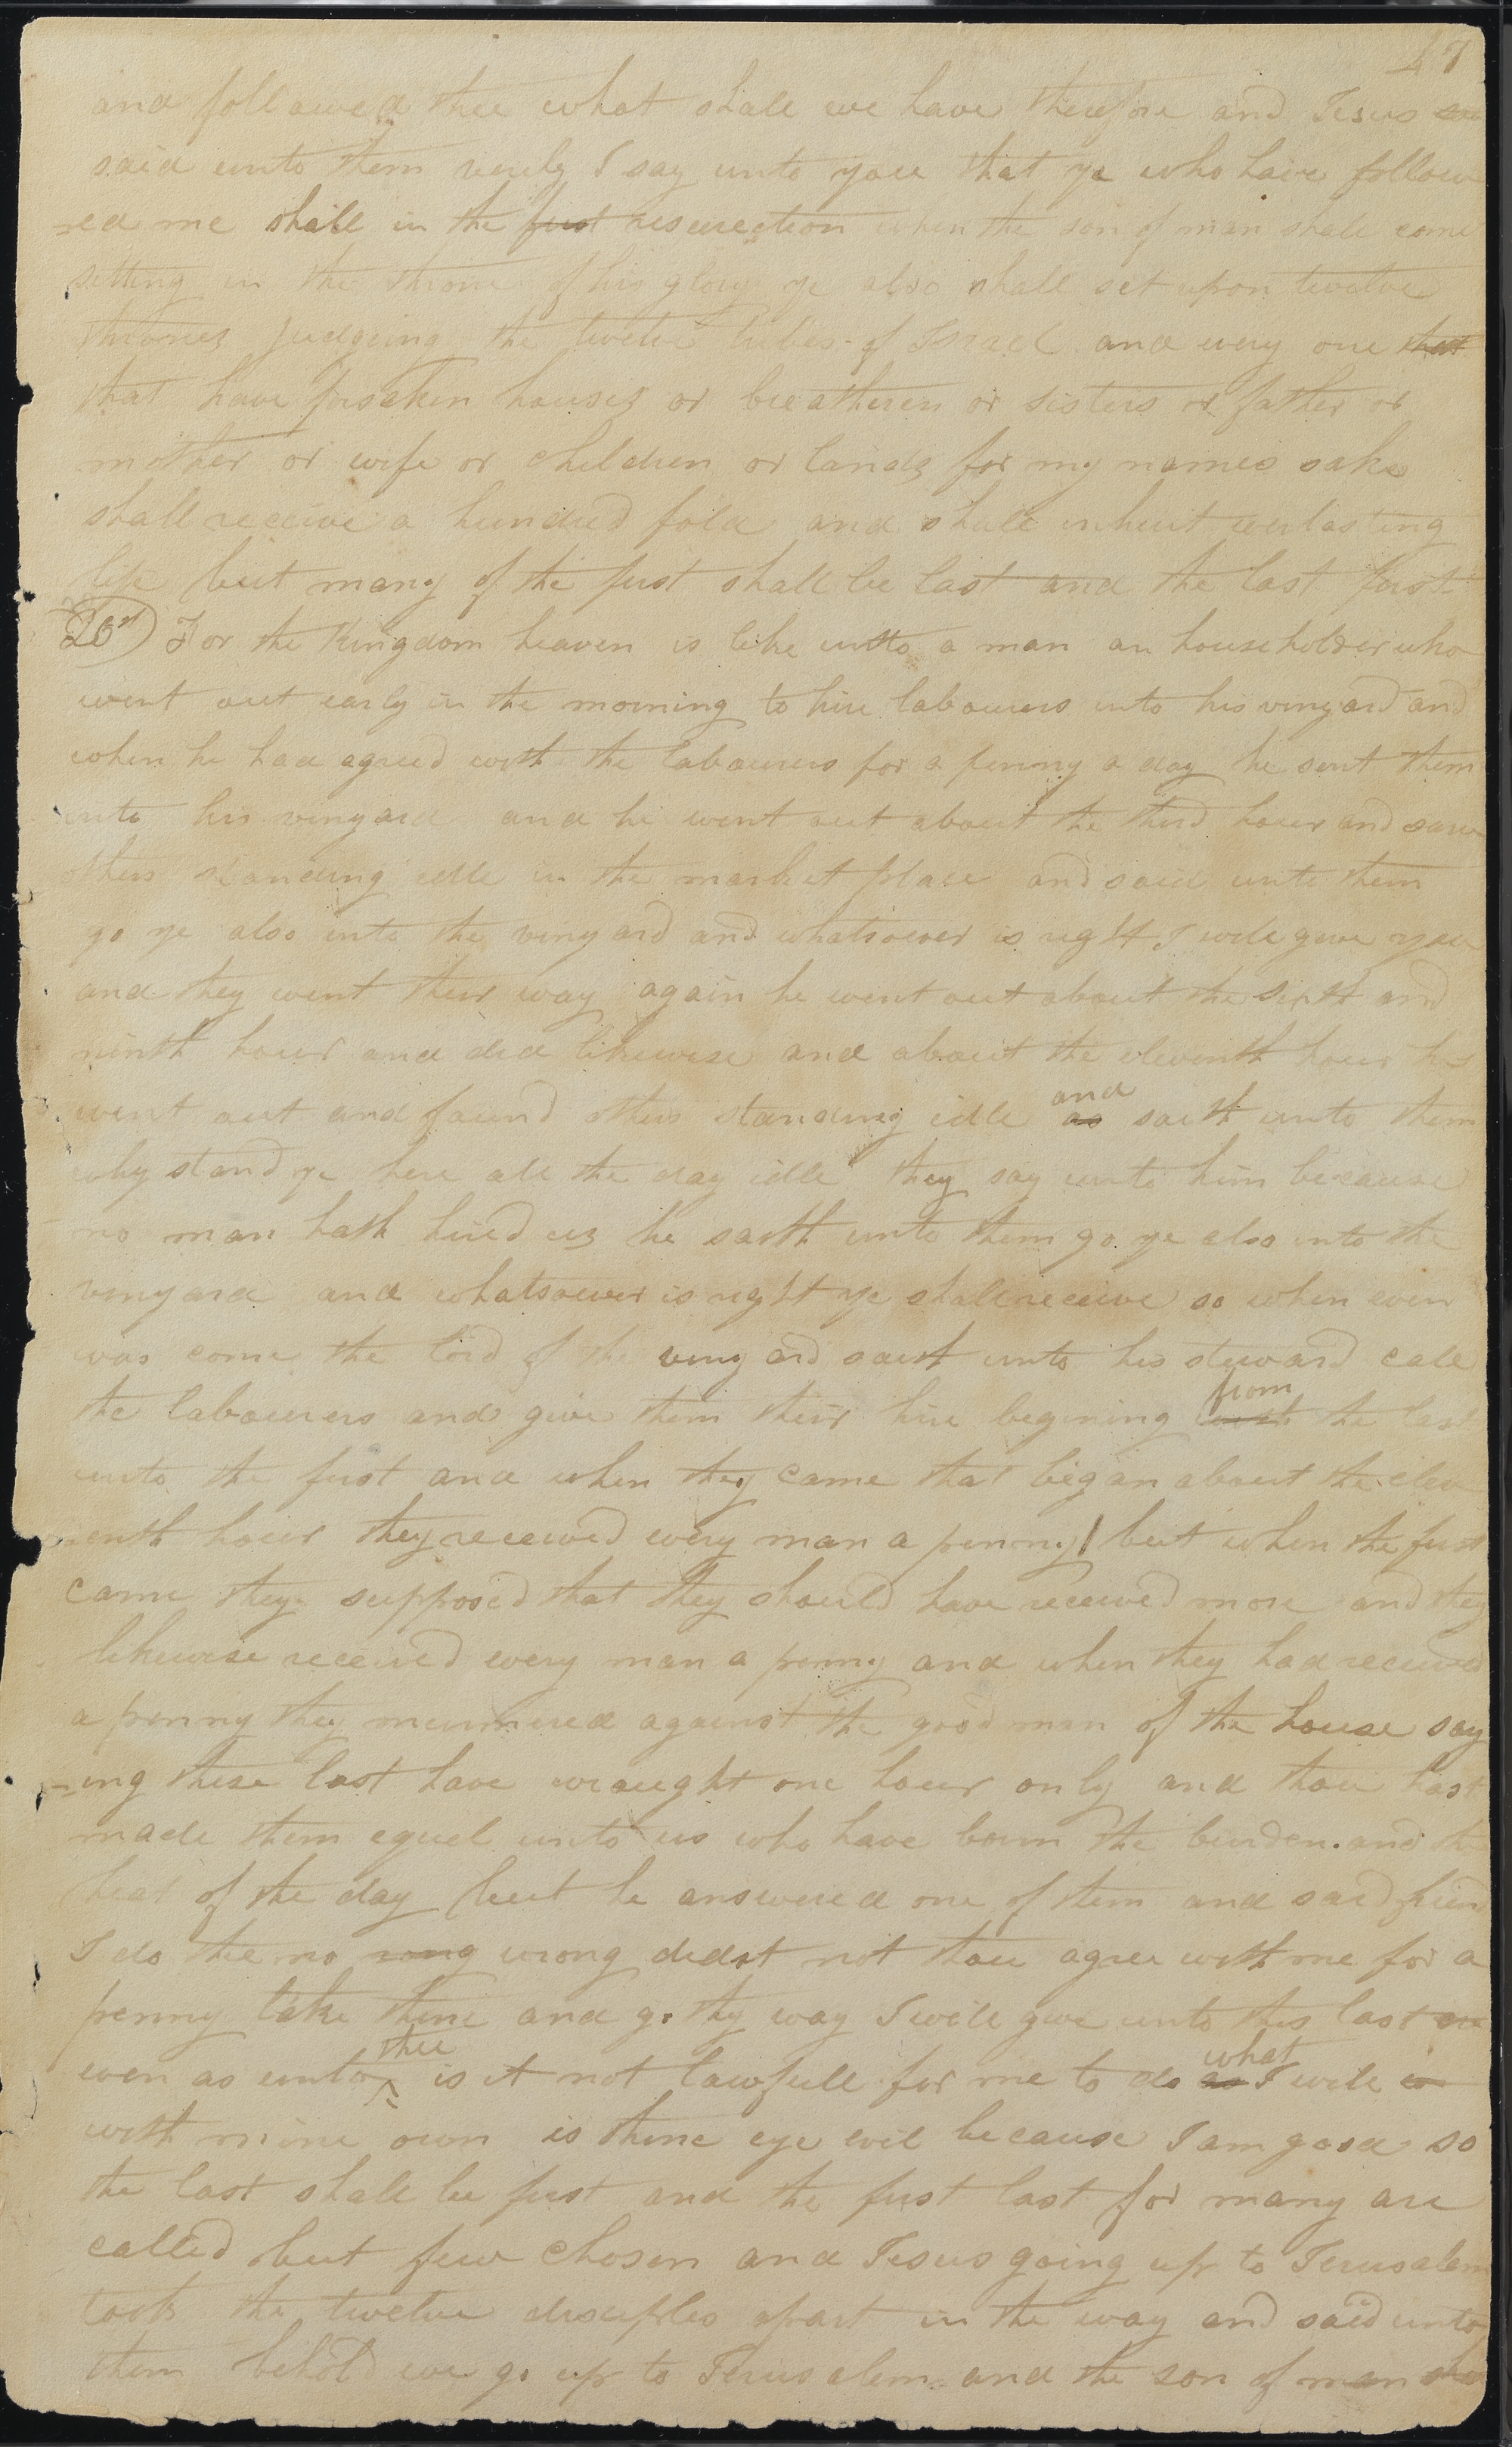 47
and followed thee what shall we have therefore and Jesus
said unto them verily I say unto you that ye who have follow
-ed me shall in the first resurection when the son of man shall come
sitting in the throne of his glory ye also shall set upon twelve
thrones judgeing the twelve tribes of Israel and every one that
that have forsaken houses or breatheren or sisters or father or
mother or wife or children or lands for my names sake
shall receive a hundred fold and shall inherit everlasting
life but many of the first shall be last and the last first
20th) For the Kingdom heaven is like unto a man an householder who
went out early in the morning to hire labourers into his vinyard and
when he had agreed with the labourers for a penny a day he sent them
into his vinyard and he went out about the third hour and saw
others standing idle in the market place and said unto them
go ye also into the vinyard and whatsoever is right I will give you
and they went their way again he went out about the sixth and
ninth hour and did likewise and about the eleventh hour he
went out and found others standing idle as and saith unto them
why stand ye here all the day idle they say unto him because
no man hath hired us he saith unto them go ye also into the
vinyard and whatsoever is right ye shall receive so when even
was come the lord of the vinyard saith unto his steward call
the labourers and give them their hire begining with from the last
unto the first and when they came that began about the elev
venth hour they received every man a penny but when the first
came they supposed that they should have received more and they
likewise received every man a penny and when they had received
a penny they murmured against the good man of the house say
-ing these last have wraught one hour only and thou hast
made them equel unto us who have born the burden and the
heat of the day but he answered one of them and said friend
I do the no rong wrong didst not thou agree with me for a
penny take thine and go thy way I will give unto this last
even as unto thee is it not lawfull for me to do as what I will in
with mine own is thine eye evil because I am good so
the last shall be first and the first last for many are
called but few chosen and Jesus going up to Jerusalem
took the twelve disciples apart in the way and said unto
them behold we go up to Jerusalem and the son of man